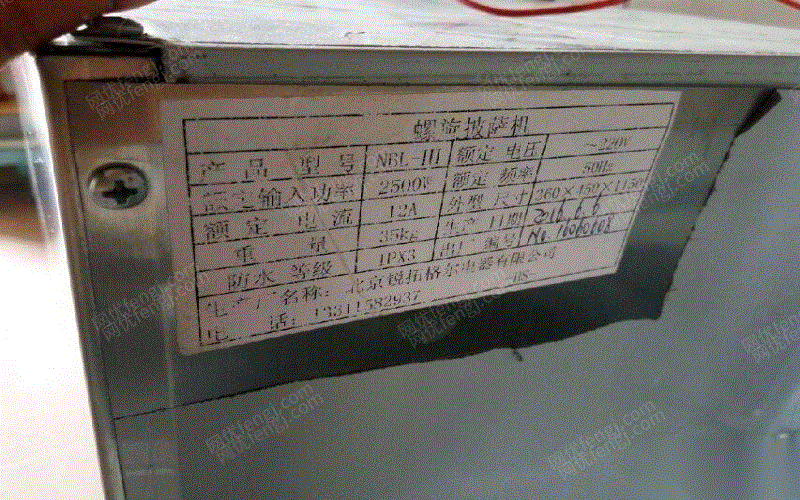 螺旋披萨机
产品型号 NBL-III 额定电压 ~220V
额定输入功率 2500W 额定频率 50Hz
额定电流 12A 外型尺寸 260×450×1150
重量 35kg 生产日期 2016.6.6
防水等级 IPX3 出厂编号 No.
生产厂名称:北京锐拓格尔电器有限公司
电话:13311582937
网优fengj.com